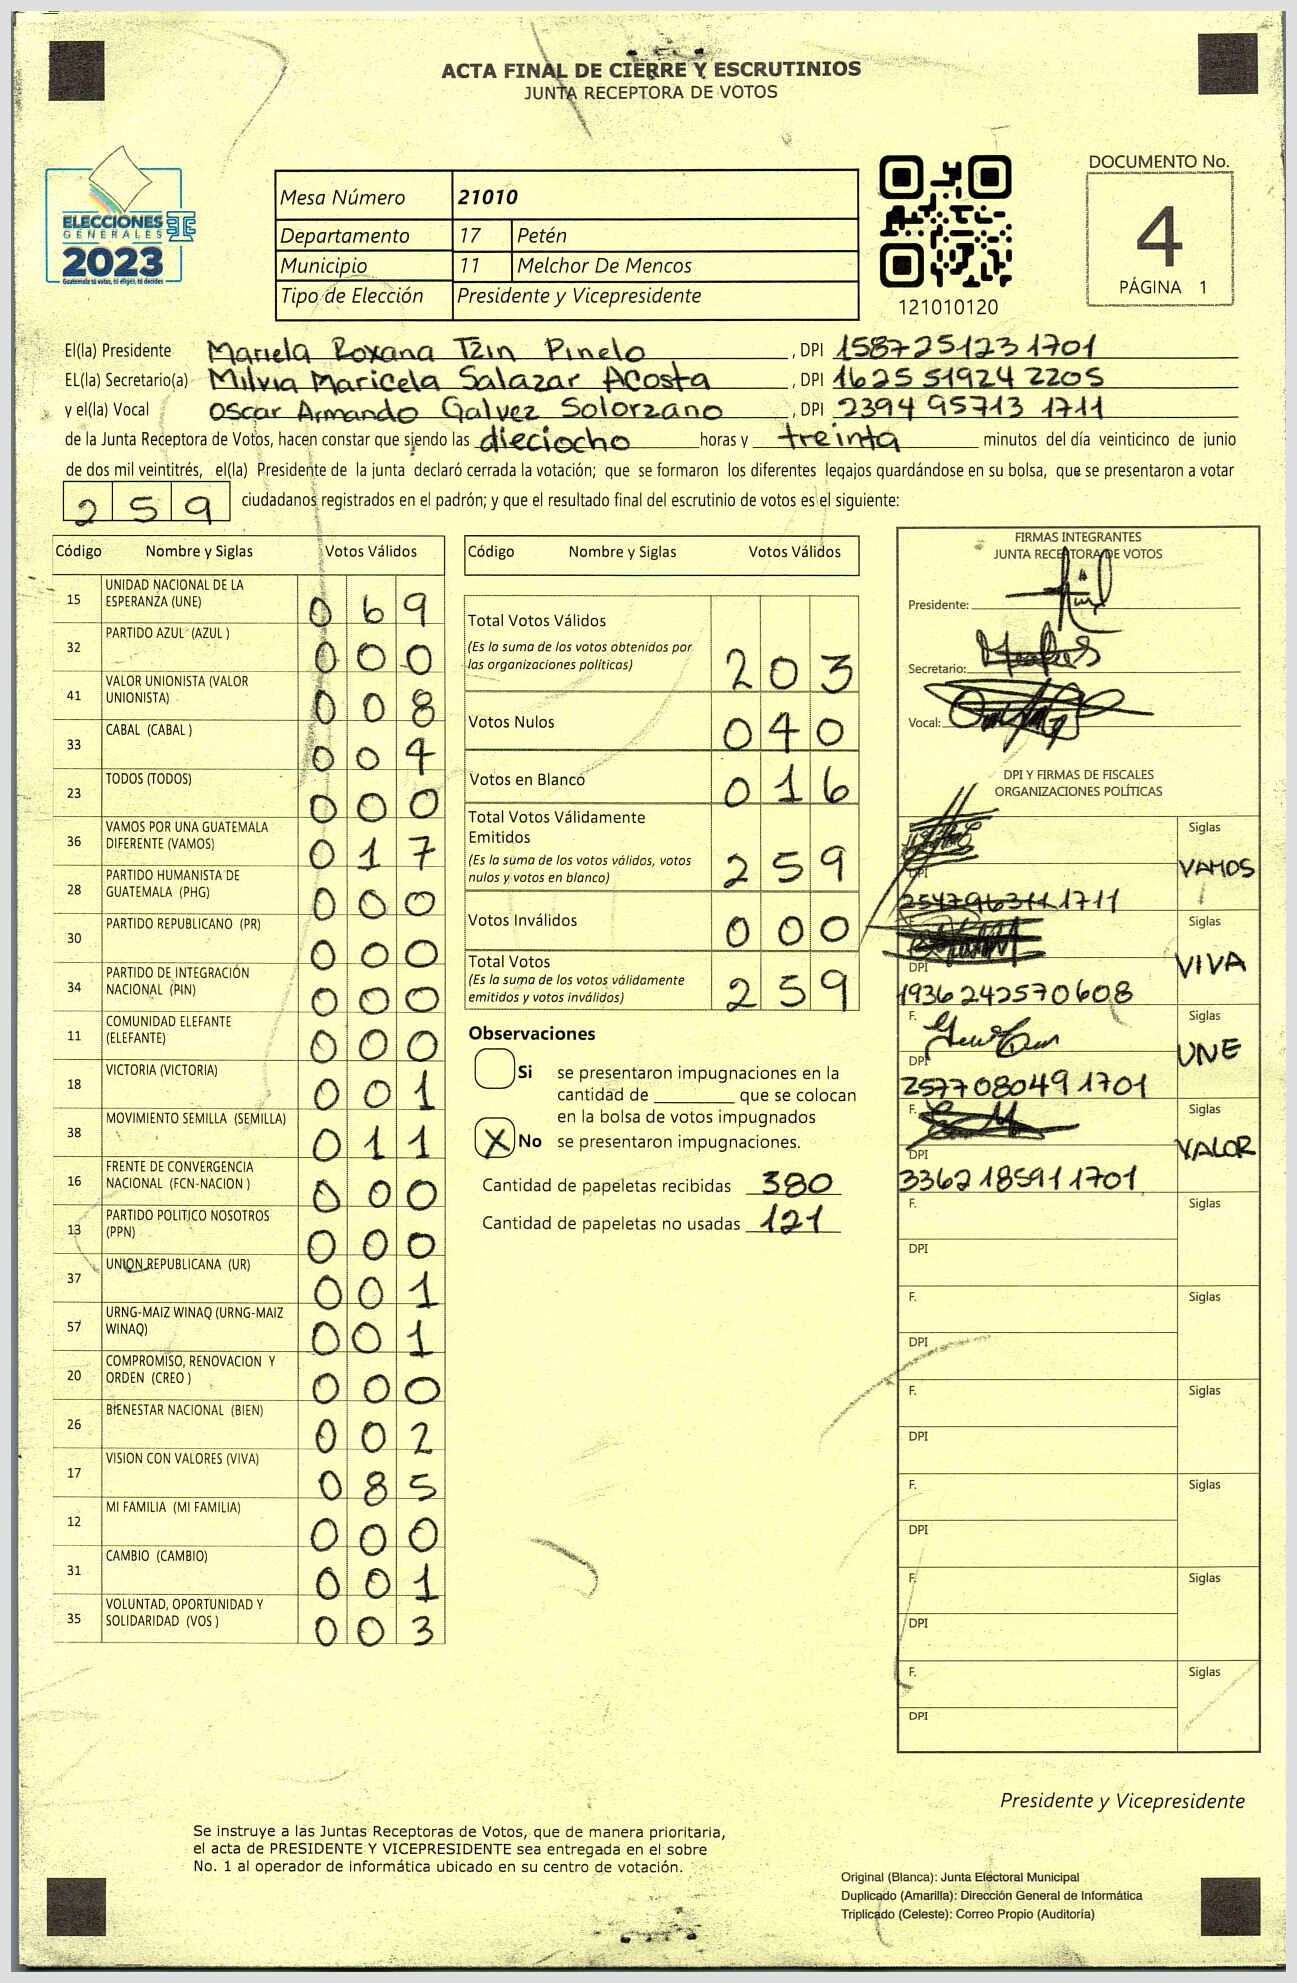 ACTA FINAL DE CIERRE Y ESCRUTINIOS
JUNTA RECEPTORA DE VOTOS
ELECCIONES
GENERALES
2023
Guatemala tú votas, tú eliges, tú decides
Mesa Número 21010
Departamento 17 Petén
Municipio 11 Melchor De Mencos
Tipo de Elección Presidente y Vicepresidente
121010120
DOCUMENTO No.
4
PÁGINA 1
El(la) Presidente Mariela Roxana Tzin Pinelo, DPI 1587251231701
EL(la) Secretario(a) Milvia Maricela Salazar Acosta, DPI 1625 51924 2205
y el(la) Vocal Oscar Armando Galvez Solorzano, DPI 2394 95713 1711
de la Junta Receptora de Votos, hacen constar que siendo las dieciocho horas y treinta minutos del día veinticinco de junio
de dos mil veintitrés, el(la) Presidente de la junta declaró cerrada la votación; que se formaron los diferentes legajos guardándose en su bolsa, que se presentaron a votar
259 ciudadanos registrados en el padrón; y que el resultado final del escrutinio de votos es el siguiente:
Código Nombre y Siglas Votos Válidos
15 UNIDAD NACIONAL DE LA ESPERANZA (UNE) 069
32 PARTIDO AZUL (AZUL ) 000
41 VALOR UNIONISTA (VALOR UNIONISTA) 008
33 CABAL (CABAL ) 004
23 TODOS (TODOS) 000
36 VAMOS POR UNA GUATEMALA DIFERENTE (VAMOS) 017
28 PARTIDO HUMANISTA DE GUATEMALA (PHG) 000
30 PARTIDO REPUBLICANO (PR) 000
34 PARTIDO DE INTEGRACIÓN NACIONAL (PIN) 000
11 COMUNIDAD ELEFANTE (ELEFANTE) 000
18 VICTORIA (VICTORIA) 001
38 MOVIMIENTO SEMILLA (SEMILLA) 011
16 FRENTE DE CONVERGENCIA NACIONAL (FCN-NACION ) 000
13 PARTIDO POLITICO NOSOTROS (PPN) 000
37 UNION REPUBLICANA (UR) 001
57 URNG-MAIZ WINAQ (URNG-MAIZ WINAQ) 001
20 COMPROMISO, RENOVACION Y ORDEN (CREO ) 000
26 BIENESTAR NACIONAL (BIEN) 002
17 VISION CON VALORES (VIVA) 085
12 MI FAMILIA (MI FAMILIA) 000
31 CAMBIO (CAMBIO) 001
35 VOLUNTAD, OPORTUNIDAD Y SOLIDARIDAD (VOS ) 003
Código Nombre y Siglas Votos Válidos
Total Votos Válidos 203
(Es la suma de los votos obtenidos por
las organizaciones políticas)
Votos Nulos 040
Votos en Blanco 016
Total Votos Válidamente
Emitidos 259
(Es la suma de los votos válidos, votos
nulos y votos en blanco)
Votos Inválidos 000
Total Votos 259
(Es la suma de los votos válidamente
emitidos y votos inválidos)
Observaciones
Si se presentaron impugnaciones en la
cantidad de ________ que se colocan
en la bolsa de votos impugnados
X No se presentaron impugnaciones.
Cantidad de papeletas recibidas 380
Cantidad de papeletas no usadas 121
FIRMAS INTEGRANTES
JUNTA RECEPTORA DE VOTOS
Presidente:
Secretario:
Vocal:
DPI Y FIRMAS DE FISCALES
ORGANIZACIONES POLÍTICAS
Siglas
VAMOS
DPI
2547963111711
Siglas
VIVA
DPI
1936242570608
F. Siglas
UNE
DPI
2577080491701
F. Siglas
VALOR
DPI
3362185911701
F. Siglas
DPI
F. Siglas
DPI
F. Siglas
DPI
F. Siglas
DPI
F. Siglas
DPI
F. Siglas
DPI
Presidente y Vicepresidente
Se instruye a las Juntas Receptoras de Votos, que de manera prioritaria,
el acta de PRESIDENTE Y VICEPRESIDENTE sea entregada en el sobre
No. 1 al operador de informática ubicado en su centro de votación.
Original (Blanca): Junta Electoral Municipal
Duplicado (Amarilla): Dirección General de Informática
Triplicado (Celeste): Correo Propio (Auditoría)